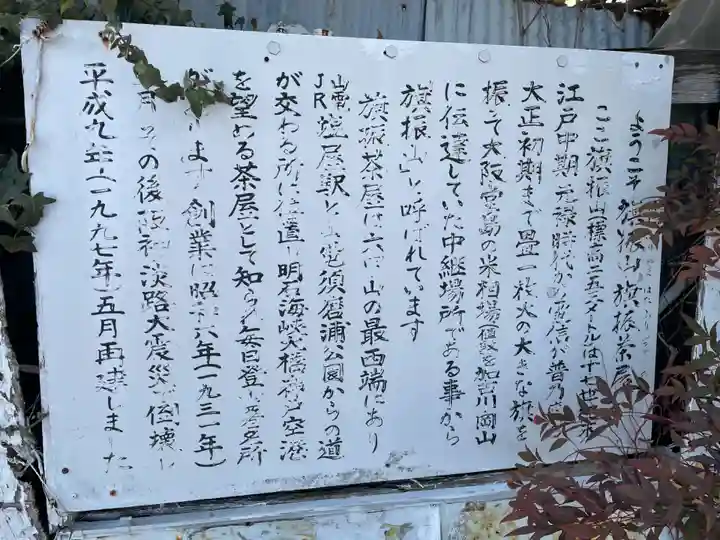 ようこそ 旗振山 旗振茶屋
はたふり
ここ旗振山(標高二五三メートル)は十七世
江戸中期 元禄時代から 電信が普及
大正初期まで畳一枚大の大きな旗を
振って大阪堂島の米相場(値段)を加古川 岡山
に伝達していた中継場所である事から
旗振山と呼ばれています
旗振茶屋は六甲山の最西端にあり
JR塩屋駅と山電須磨浦公園からの道
山電
が交わる所に位置し明石海峡大橋神戸空港
を望める茶屋として知られ毎日登山署名所
があります 創業は昭和六年(一九三一年)
その後阪神淡路大震災で倒壊し
平成九年(一九九七年)五月再建しました